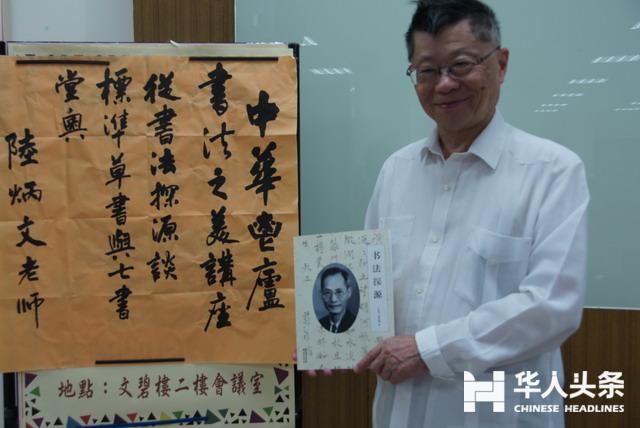 中華廬
書法之美講座
從書法探源談
標準草書與七書
堂奧
陸炳文老師
地點：文碧樓二樓會議室
书法探源
华人头条
CHINESE HEADLINES